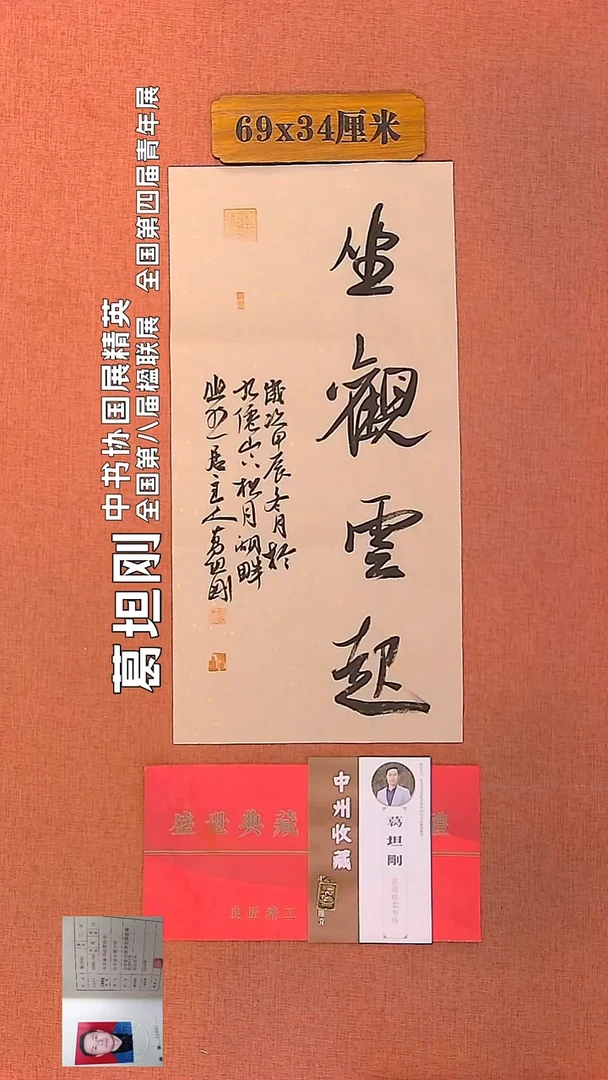 69x34厘米
坐觀雲起
歲次甲辰冬月於
九僊山下松月湖畔
一居主人葛坦剛
葛坦刚
中书协国展精英
全国第八届楹联展 全国第四届青年展
盛世典藏
良匠精工
中州收藏
葛坦剛